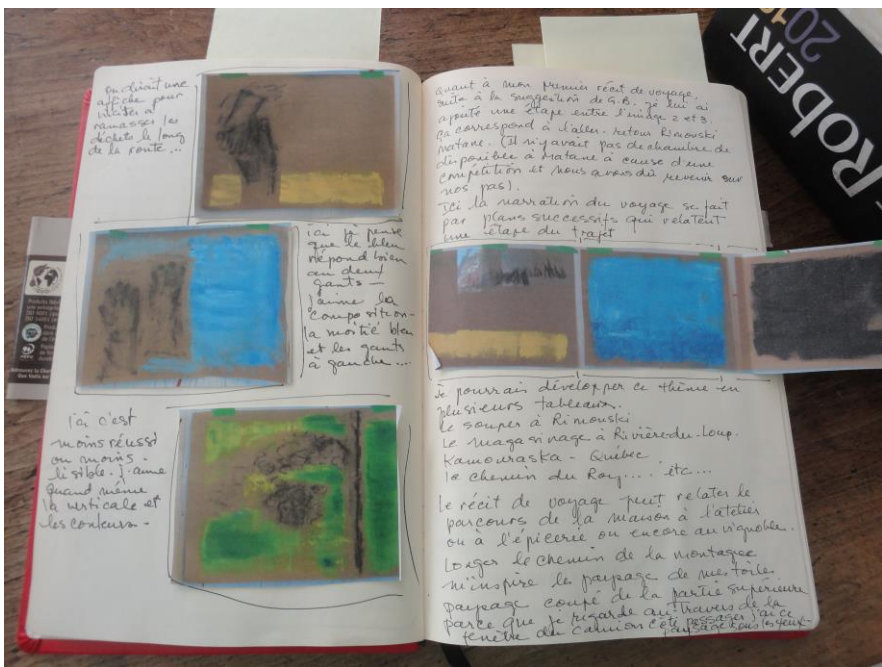 On dirait une
affiche pour
inviter à
ramasser les
déchets le long
de la route...
ici je pense
que le bleu
répond bien
au deux
gants —
j'aime la
composition -
la moitié bleu
et les gants
à gauche...
ici c'est
moins réussi
ou moins
lisible. J'aime
quand même
la verticale et
les couleurs.
quant à mon premier récit de voyage,
suite à la suggestion de G.B. je lui ai
ajouté une étape entre l'image 2 et 3.
Ça correspond à l'aller-retour Rimouski
Matane. (Il n'y avait pas de chambre de
disponible à Matane à cause d'une
compétition et nous avons dû revenir sur
nos pas).
Ici la narration du voyage se fait
par plans successifs qui relatent
une étape du trajet
Je pourrais développer ce thème en
plusieurs tableaux.
le souper à Rimouski
Le magasinage à Rivière-du-Loup.
Kamouraska - Québec
le chemin du Roy.... etc...
Le récit de voyage peut relater le
parcours de la maison à l'atelier
ou à l'épicerie ou encore au vignoble.
Longer le chemin de la montagne
m'inspire le paysage de mes toiles
paysage coupé de la partie supérieure
parce que je regarde au travers de la
fenêtre du camion côté passager j'ai ce
paysage sous les yeux.
ROBERT